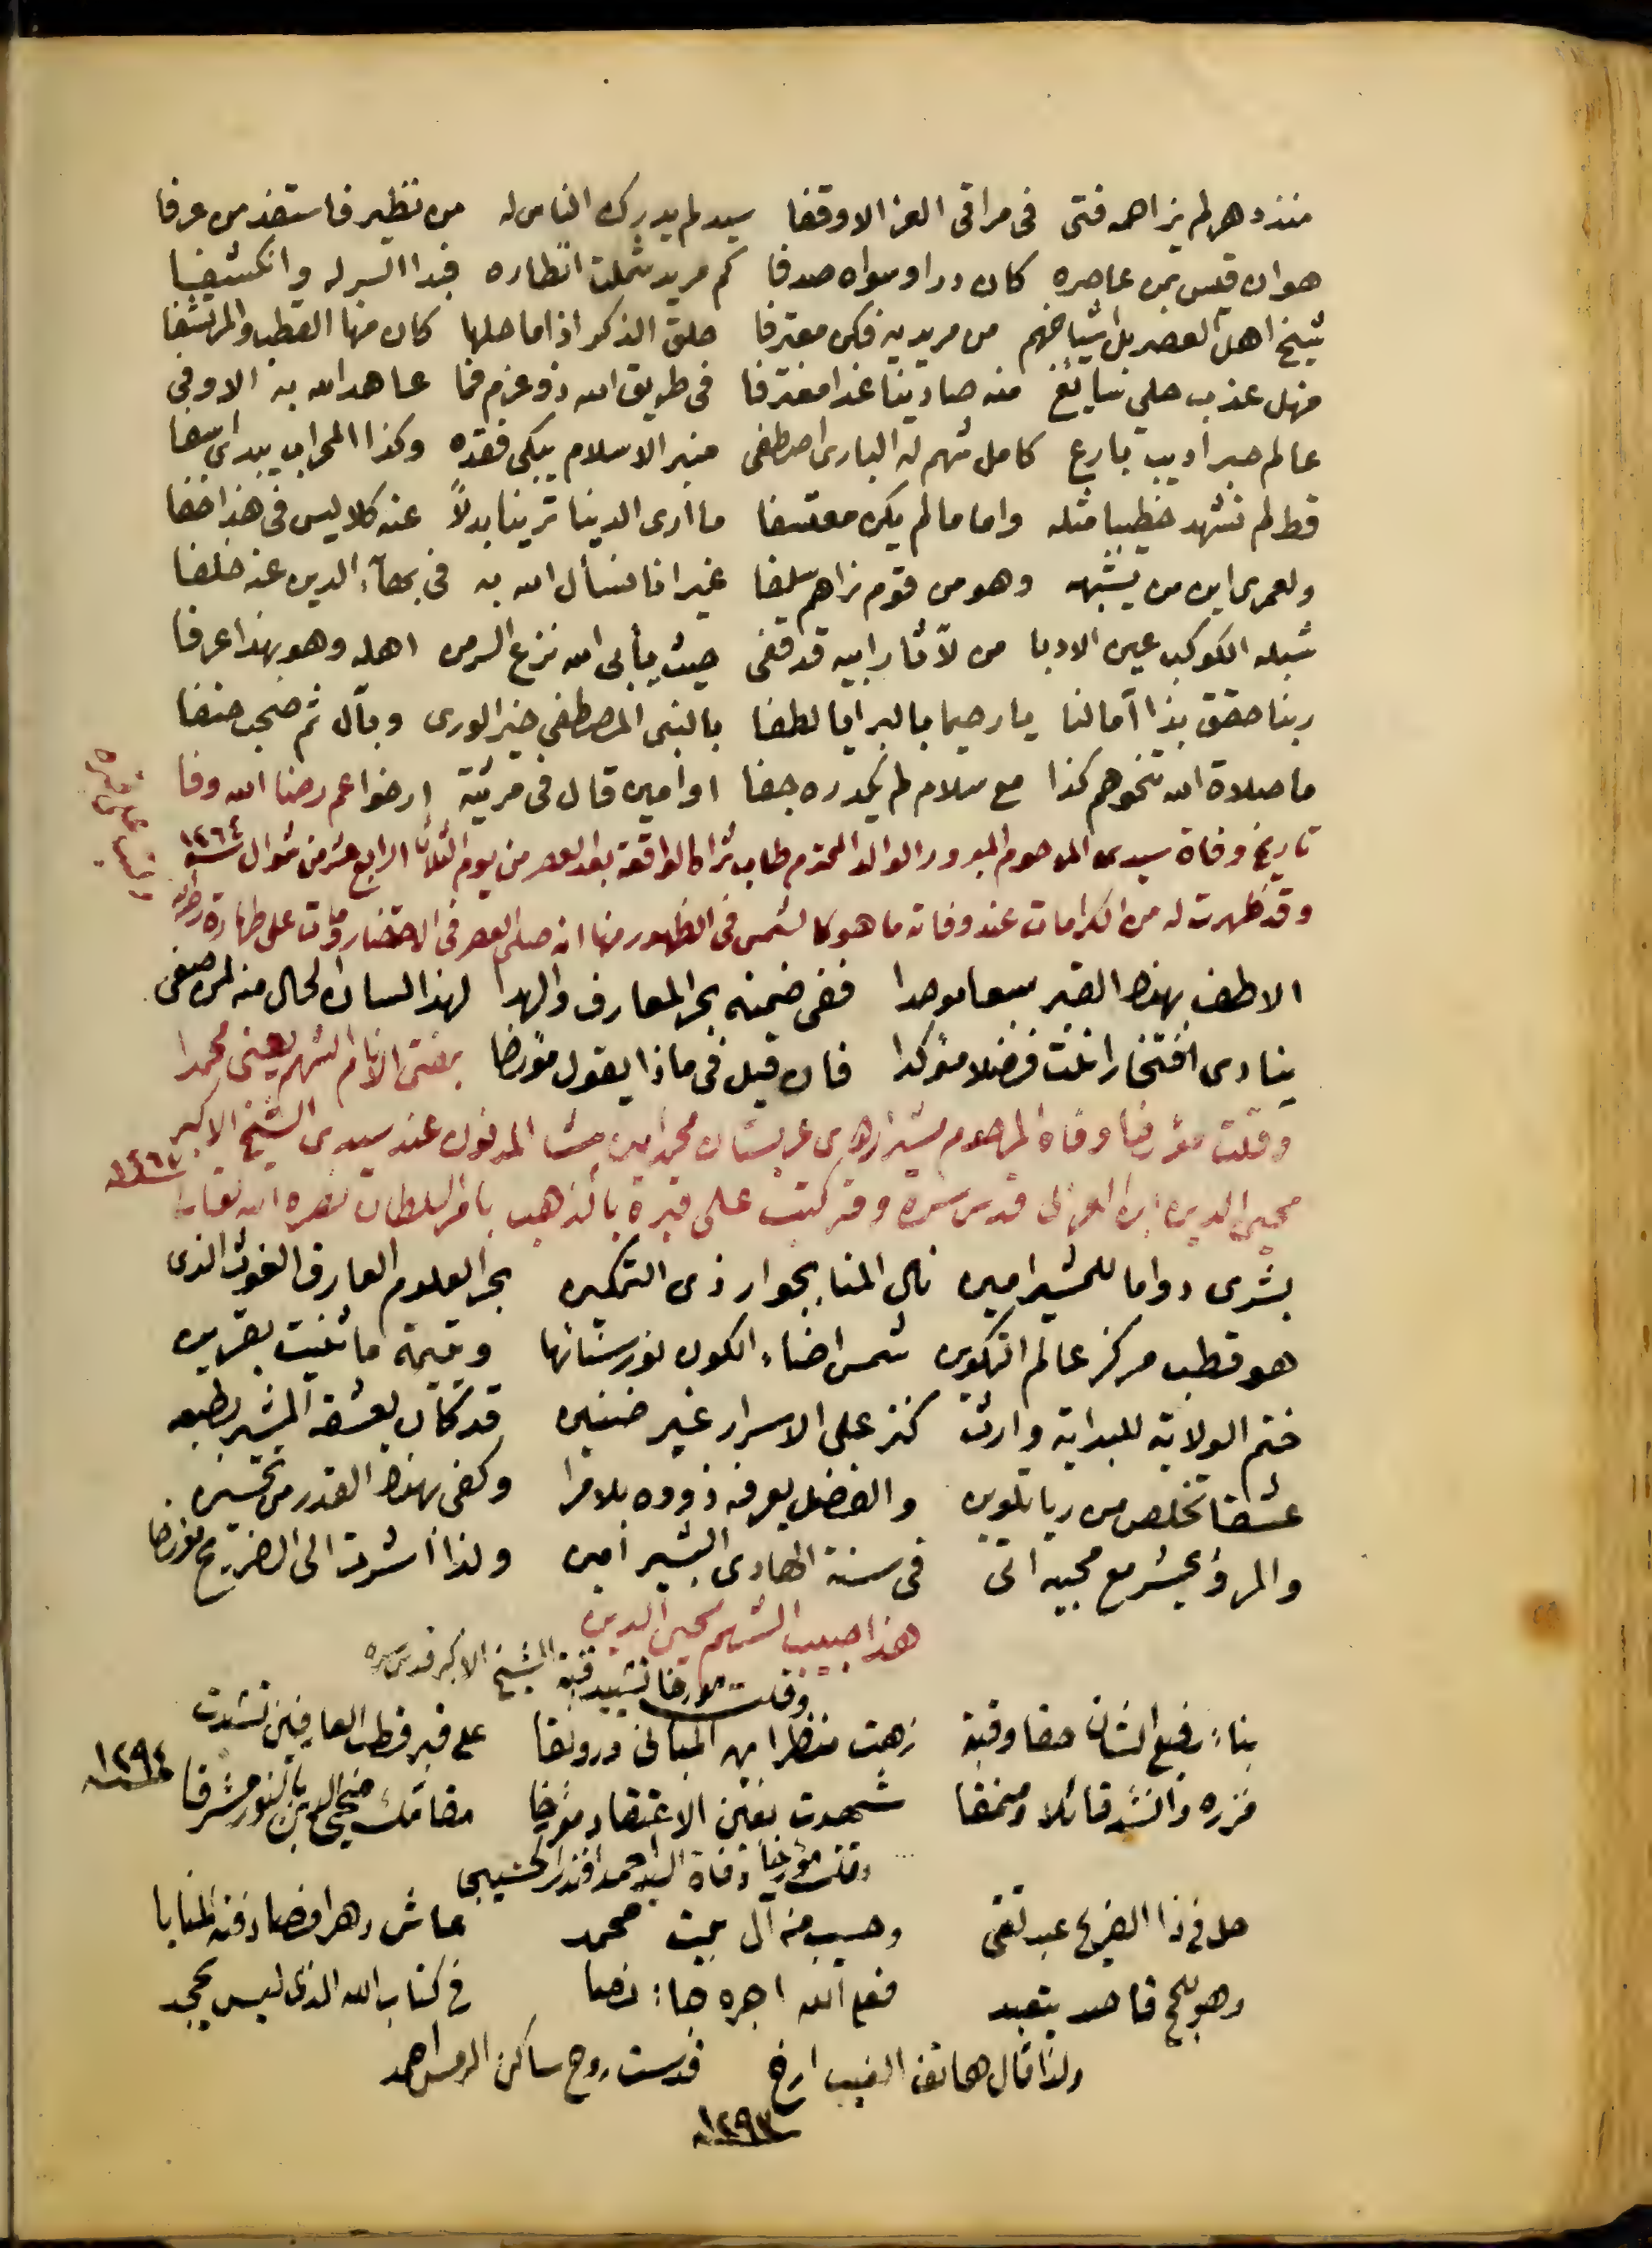 منذ دهر لم يزاهمه فتى في مراقي العز الا وقفا سيد لم يدرك الناس له من نظير فاستفد من عرفا
هو ان قيس بمن عاصره كان درا وسواه صدفا كم مريد شملت انظاره فبدا السر له وانكشفا
شيخ اهل العصر بل اشياخهم من مريديه فكن معترفا حلق الذكر اذا ما حلها كان منها القطب والمرتشفا
منهل عذب حلي سايغ منه صادينا غدا مغترفا في طريق الله ذو عزم فما عاهد الله به الا وفى
عالم حبر اديب بارع كامل شهم له البارى اصطفى منبر الاسلام يبكى فقده وكذا المحراب يبدى اسفا
قط لم نشهد خطيبا مثله واماما لم يكن معتسفا ما ارى الدنيا ترينا بدلاً عنه كلا ليس في هذا خفا
ولعمرى اين من يشبهه وهو من قوم نراهم سلفا غير انا نسأل الله به في بقاء الدين عنه خلفا
شبله الكوكب عين الادبا من لآثار ابيه قد قفى حيث يأبى الله نزع السر من اهله وهو بهذا عرفا
ربنا حقق بذا آمالنا يا رحيما بالبرايا لطفا بالنبى المصطفى خير الورى وبآل ثم صحب حنفا
ما صلاة الله تنحوهم كذا مع سلام لم يكدره جفا او امين قال في مرثية ارخوا عم رضا الله وفا
تاريخ وفاة سيدى المرحوم المبرور الوالد المحترم طاب ثراه الواقعة بعد العصر من يوم الثلاثا الرابع عشر من شوال سنة ١٢٦٤
وقد ظهرت له من الكرامات عند وفاته ما هو كالشمس في الظهور منها انه صلى العصر في الاحتضار ومات على طهارة
الا طف بهذا القبر سبعا موحدا ففى ضمنه بحر المعارف والهدا لهذا لسان الحال منه لمن صغى
ينادى افتخارا نلت فضلا مؤكدا فان قيل في ماذا يقول مؤرخا بمفتى الانام الشهم يعنى محمدا
وقلت مؤرخا وفاة المرحوم مشير اردوى عربستان محمد امين باشا المدفون عند سيدى الشيخ الاكبر
محيى الدين ابن العربى قدس سره وقد كتبت على قبره بالذهب بامر السلطان نصره الله تعالى ١٢٦٧
بشرى دواما للمشير امين نال المنا بجوار ذى التمكين بحر العلوم العارف الغوث الذى
هو قطب مركز عالم التكوين شمس اضاء الكون نور سنائها ويتيمة ما ثنيت بقرين
ختم الولاية للبداية وارث كنز على الاسرار غير ضنين قد كان يعشقه المشير بطبعه
عشقا تخلص من ريا تلوين والفضل يعرفه ذووه بلا مرا وكفى بهذا القدر من تحسين
والمرؤ يحشر مع محبيه اتى في سنة الهادى البشير امين ولذا اشرت الى الضريح مؤرخا
هذا حبيب الشهم محيى الدين
وقلت مؤرخا تشييد قبة الشيخ الاكبر قدس سره
بناء رفيع الشان حقا وقبة زهت منظرا بهى المبانى ورونقا على قبر قطب العارفين تشيدت
فزره وانشد قائلا ومنمقا شهدت بعين الاعتقاد مؤرخا مقامك محيى الدين بالنور مشرقا ١٢٩٤
وقلت مؤرخا وفاة السيد احمد افندى الحسيبى
حل في ذا الضريح عبد تقى وحسيب من آل بيت محمد عاش دهرا فصادفته المنايا
وهو للحج قاصد يتعبد فعلى الله اجره جاء نصا في كتاب الله الذى ليس يجحد
ولذا قال هاتف الغيب ارخ قدست روح ساكن الرمس احمد
١٢٩٣